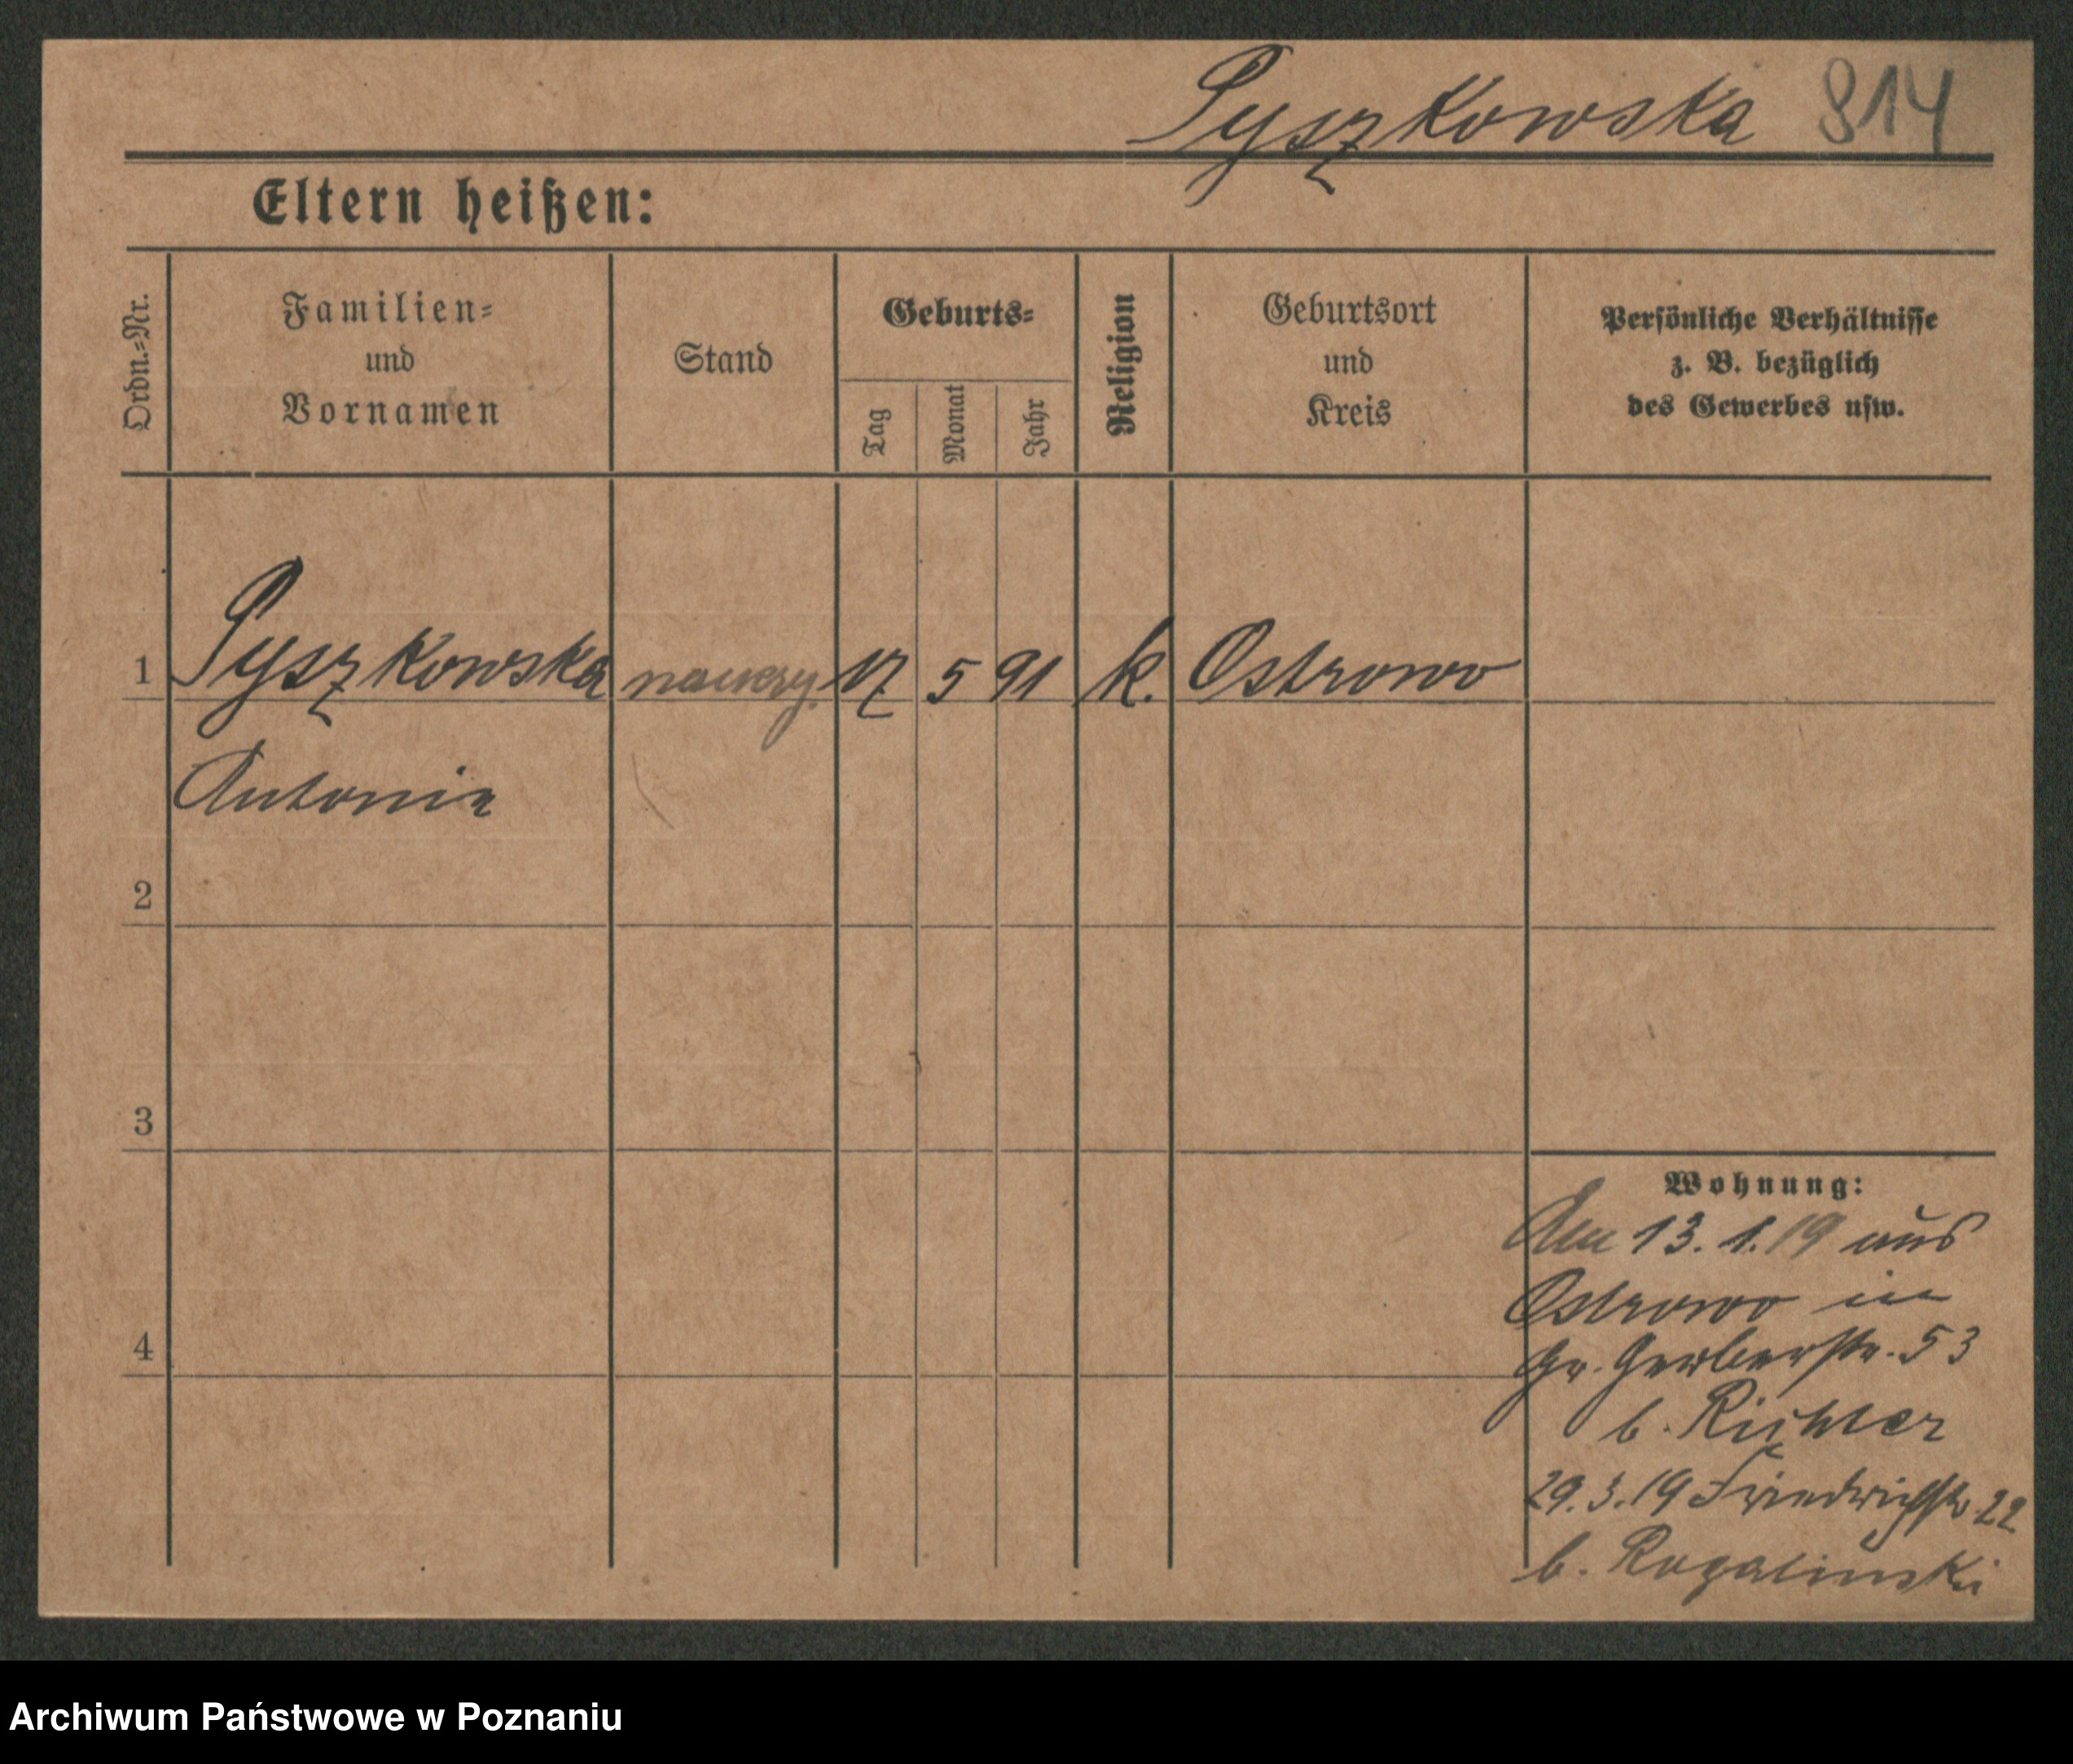 Pyszkowska 814
Eltern heißen:
Ordn.-Nr.
Familien-
und
Vornamen
Stand
Geburts-
Tag
Monat
Jahr
Religion
Geburtsort
und
Kreis
Persönliche Verhältnisse
z. B. bezüglich
des Gewerbes usw.
1 Pyszkowska nauczy. 17 5 91 k. Ostrowo
Antonie
2
3
4
Wohnung:
Am 13. 1. 19 aus
Ostrowo in
Gr. Gerberstr. 53
b. Richter
29. 3. 19 Friedrichstr 22
b. Rogalinski
Archiwum Państwowe w Poznaniu